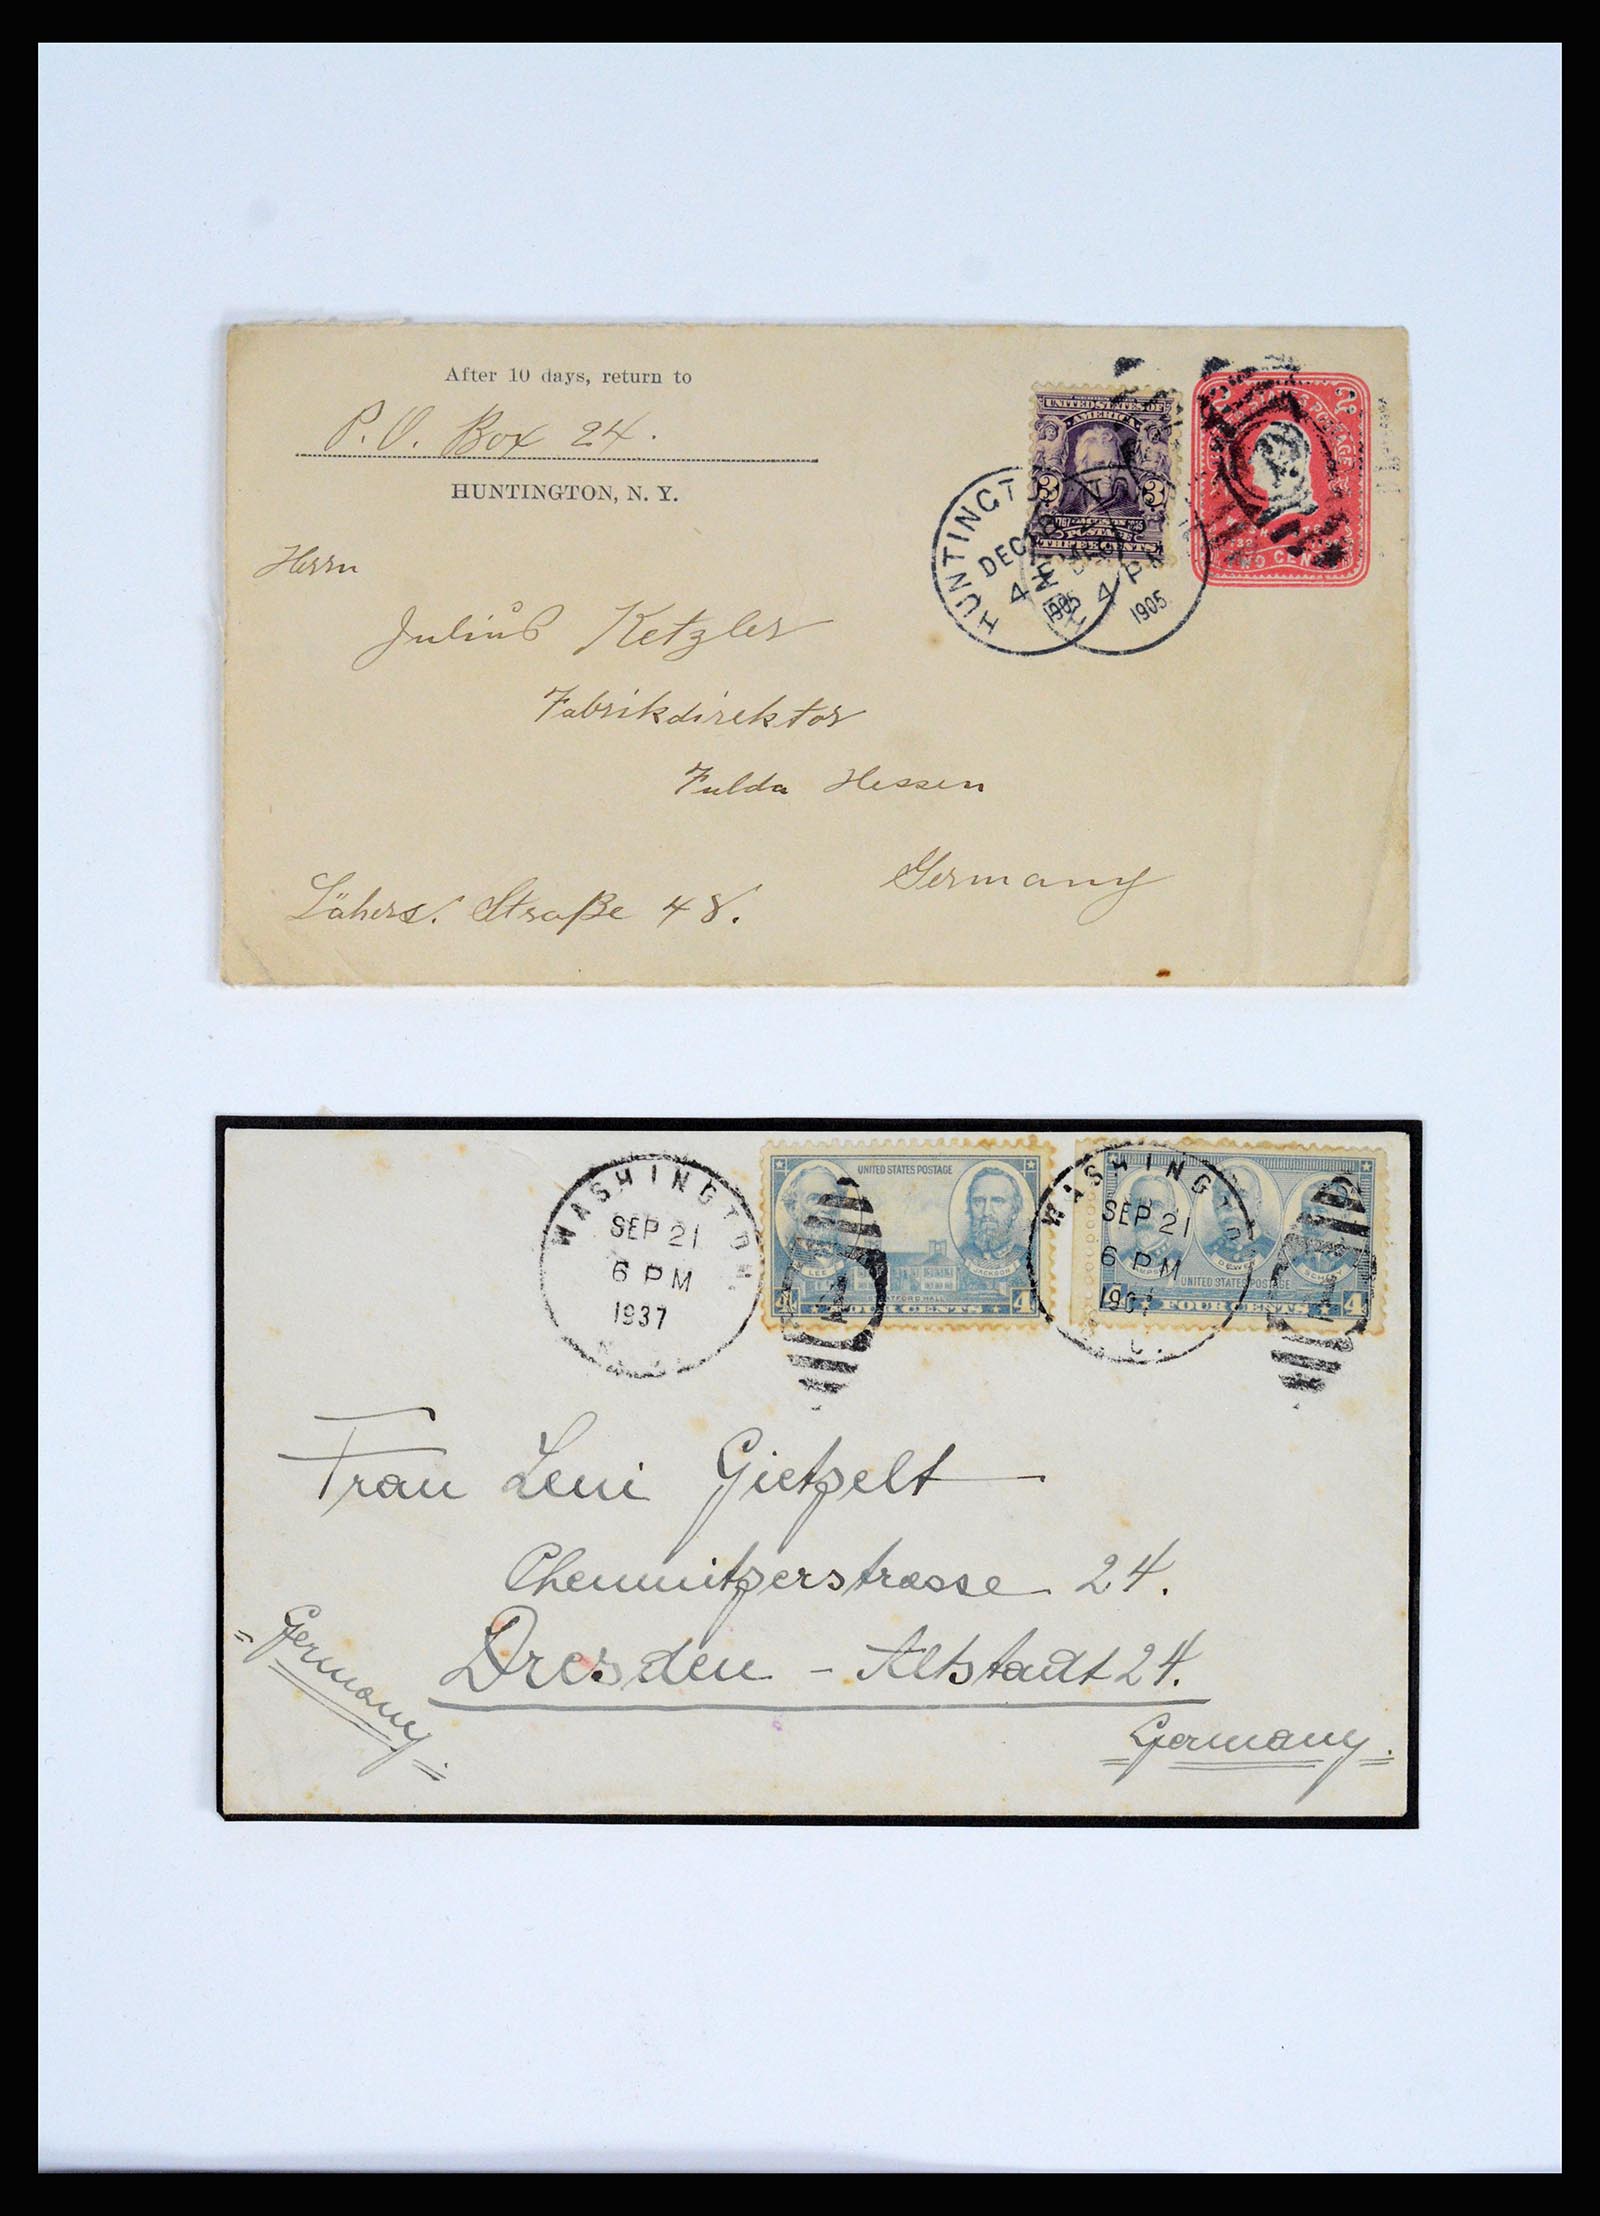 After 10 days, return to
P. O. Box 24.
HUNTINGTON, N. Y.
UNITED STATES OF
AMERICA
3 3
1767 JACKSON 1845
POSTAGE
THREE CENTS
2 2
HUNTINGTON
DEC 18
4 PM
1905
4 PM
1905
Herrn
Julius Ketzler
Fabrikdirektor
Fulda Hessen
Germany
Straße 48.
WASHINGTON,
SEP 21
6 PM
1937
UNITED STATES POSTAGE
LEE JACKSON
STRATFORD HALL
4 FOUR CENTS 4
WASHINGTON
SEP 21
6 PM
DEWEY
UNITED STATES POSTAGE
4 FOUR CENTS 4
Frau Leni Gietzelt
Chemnitzerstrasse 24.
Dresden - Altstadt 24.
Germany.
Germany.